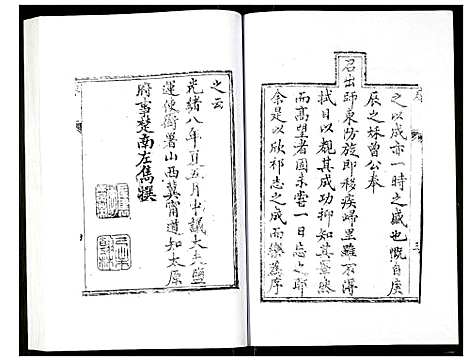 之以成亦一時之盛也慨自庚
辰之妹曾公奉
召出師東防旋即移疾歸里雖不得
拭目以觀其成功抑知其寧然
而高望者固未嘗一日忘之耶
余是以欣祁志之成而樂為序
之云
光緒八年夏五月中議大夫鹽
運使銜署山西冀甯道知太原
府事楚南左雋撰